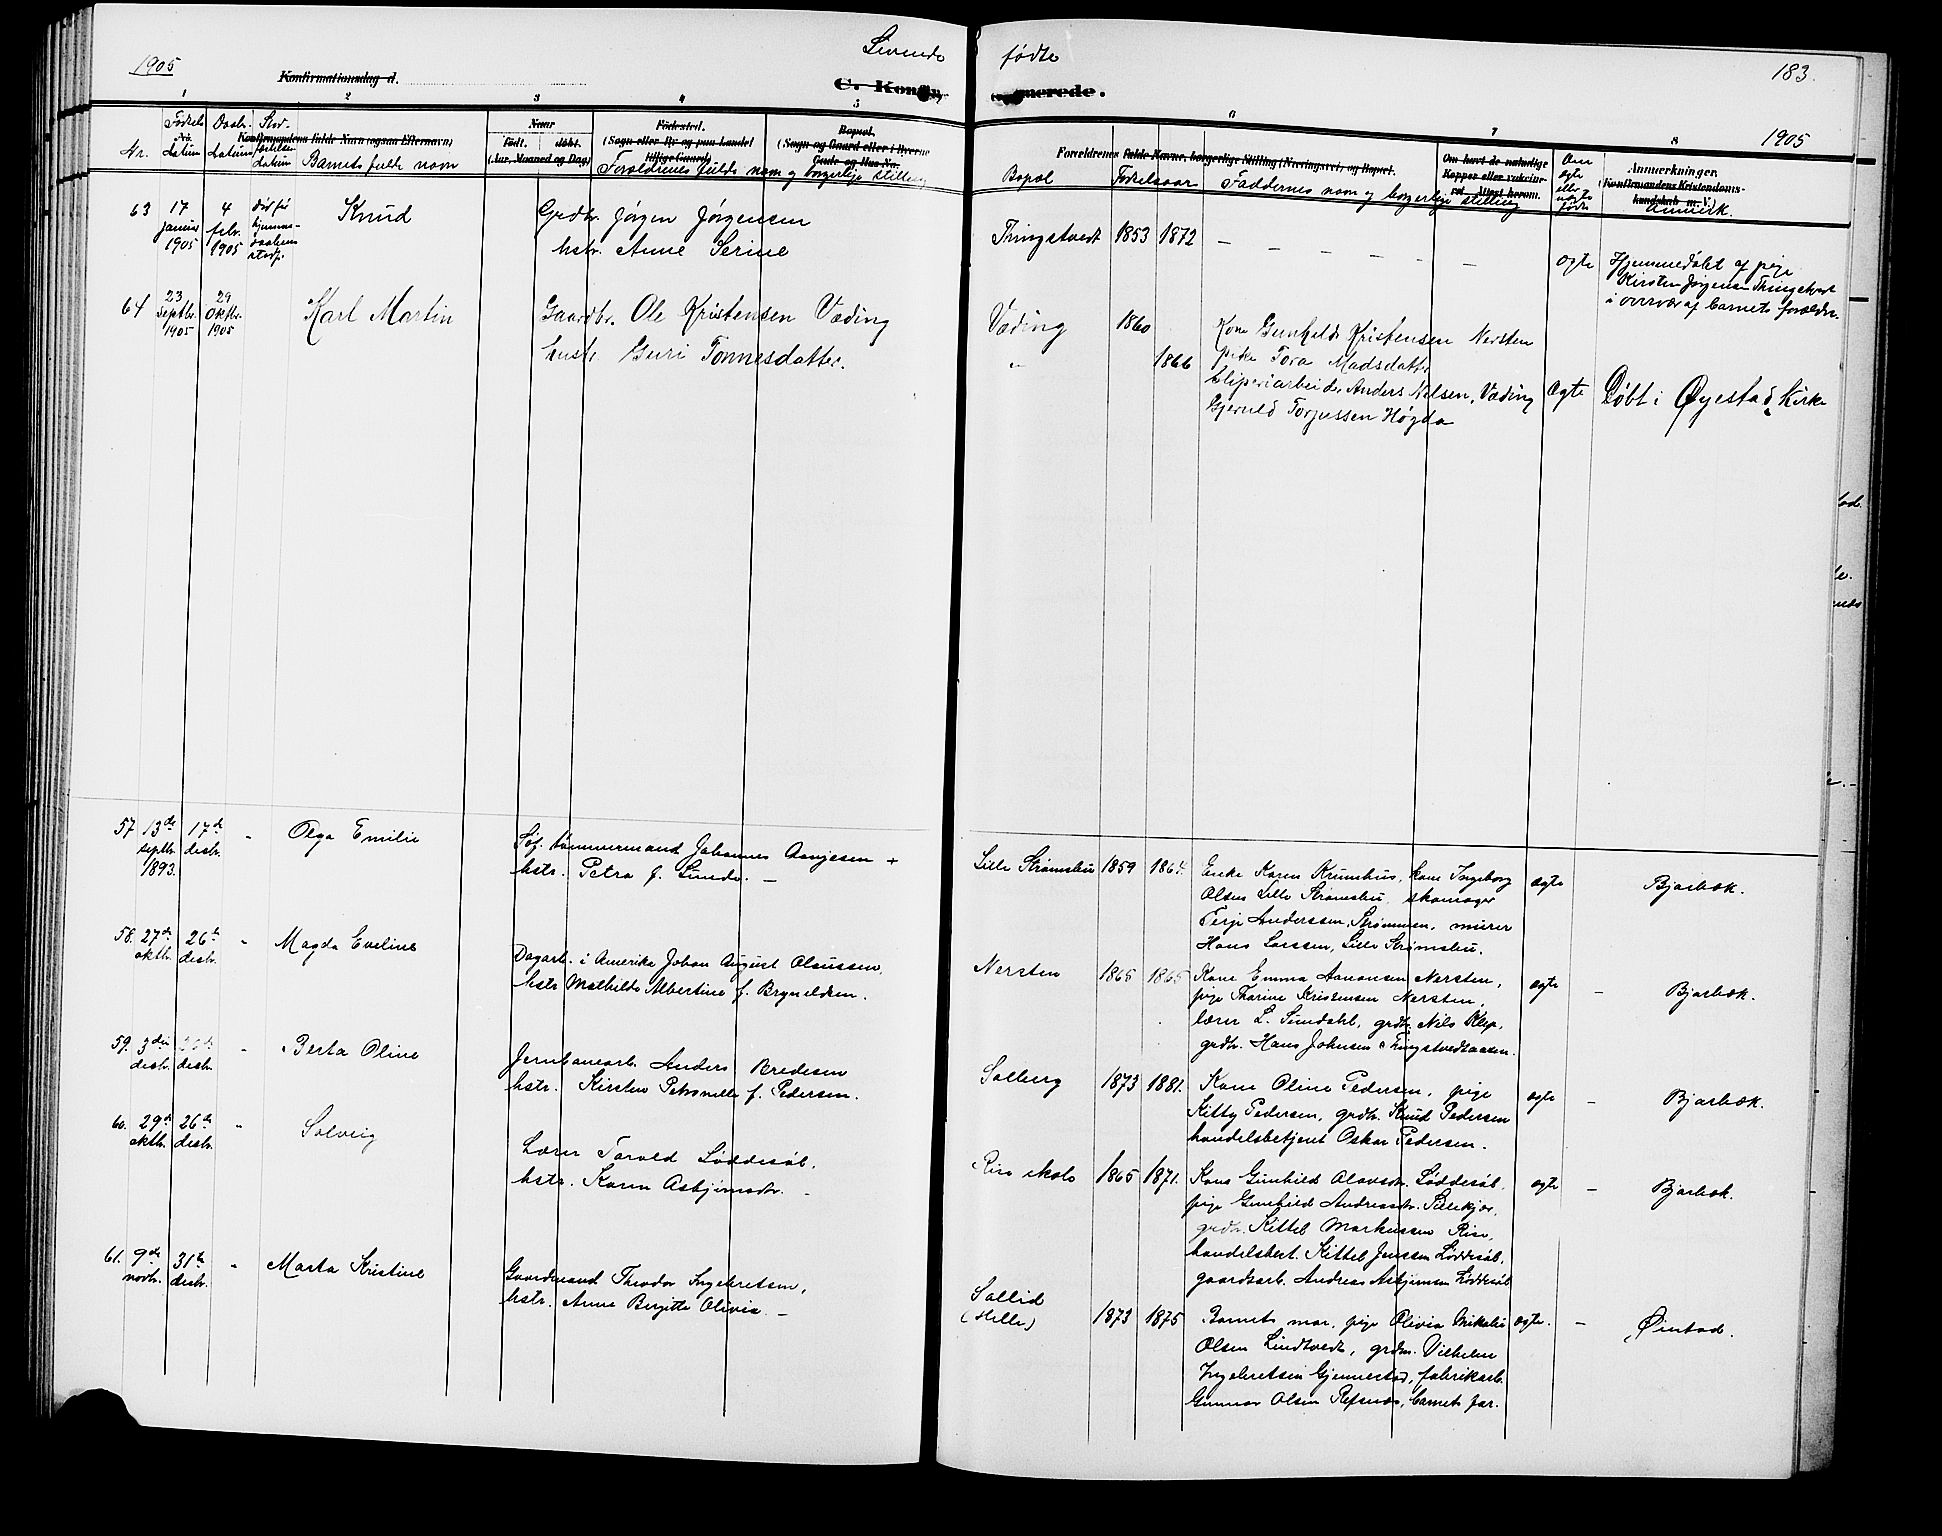 1905
Levende
fødte
183.
Konfirmationsdag d.
C. Kon
merede.
1 2 3 4 5
6 7 8
1905
Nr.
Fødsels
No.
datum
Daab.
datum
Sted-
datum
Konfirmandens fulde Navn (ogsaa Efternavn)
Barnets fulde navn
Naar
født. døbt.
(Aar, Maaned og Dag)
Fødested.
(Sogn eller By og paa Landet
tillige Gaard)
Bopæl.
(Sogn og Gaard eller i Byerne
Gade og Hus No.
Forældrenes fulde navn og borgerlige stilling
Forældrenes fulde Navne, borgerlige Stilling (Næringsvei) og Bopæl.
Bopæl
Fødselsaar
Faddernes navn og borgerlige stilling
Om havt de naturlige
Kopper eller vaksine-
ret. Attest herom.
Om
ægte
eller
uægte
født
Anmerkninger.
(Konfirmandens Kristendoms-
kundskab m. V.)
Anmerk.
63 17 januar 1905
4 febr. 1905
Knud
Grdbr. Jørgen Jørgensen
hstr. Anne Serine
Tringstvedt 1853 1872 — — — — — — —
ægte
Hjemmedøbt af pige
Kirsten Jørgensen Tringstvedt
i overvær af barnets forældre.
64 23 Septbr. 1905
29 Oktbr. 1905
Karl Martin
Gaardbr. Ole Kristensen Væding
hustr. Guri Tønnesdatter.
Væding 1860
" 1866
Kone Gunhild Kristensen Nersten
pike Tora Madsdatter
Sliperiarbeider Anders Nilsen, Væding
Gjeruld Torjussen Høgda
Ægte
Døbt i Øyestad Kirke
57 13de septbr. 1893.
17de desbr.
"
Olga Emilie
Søf. tømmermand Johannes Aanjesen +
hstr. Petra f. Sunde. —
Lille Strømsbu 1859 1864.
Enke Karen Krumhus, kone Ingeborg
Olsen Lille Strømsbu, skomager
Terje Anderssen, Strømmen, murer
Hans Larssen, Lille Strømsbu.
ægte
Bjorbæk.
58. 27de oktbr.
26de desbr.
"
Magda Eveline
Dagarb. i Amerika Johan August Olaussen,
hstr. Mathilde Albertine f. Bryneldsen.
Nersten 1865 1865
Kone Emma Aanonsen Nersten,
pige Tharine Kristensen Nersten,
lærer L. Sundahl, grdbr. Nils Klep,
grdbr. Hans Johnsen Tringstvedtaasen.
ægte —
Bjorbæk.
59. 3die desbr.
desbr.
"
Berta Oline
Jernbanearb. Anders Bredesen
hstr. Kirsten Petronelle f. Pedersen.
Solberg 1873 1881.
Kone Oline Pedersen, pige
Kitty Pedersen, grdbr. Knud Pedersen
handelsbetjent Oskar Pedersen.
ægte —
Bjorbæk.
60. 29de oktbr.
26de desbr.
"
Solveig
Lærer Torvald Løddesøl,
hstr. Karen Asbjørnsdtr. —
Rise skole 1865 1871.
Kone Gunhild Olavsdtr. Løddesøl,
pige Gunhild Andreasdtr.
grdbr. Kittel Markussen Rise,
handelsbest. Kittel Jenssen Løddesøl,
gaardsarb. Andreas Asbjørnsen Løddesøl
ægte —
Bjorbæk.
61. 9de novbr.
31te desbr.
"
Marta Kristine
Gaardmand Theodor Ingebretsen,
hstr. Anne Birgitte Olivia. —
Sollid
(Helle) 1873 1875
Barnets mor, pige Olivia Mikalie
Olsen Lindtvedt, grdm. Vilhelm
Ingebretsen Gjennestad, fabrikarb.
Gunnar Olsen Refsnes, barnets far.
ægte. —
Øiestad.